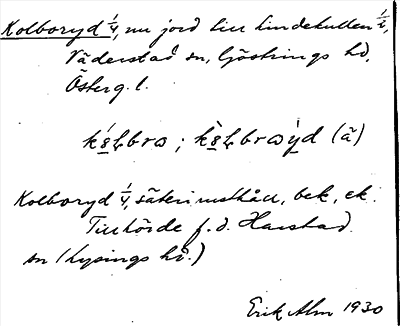 Kolboryd 1/4, nu jord till Lindekullen 1/2,
Väderstad sn, Göstrings hd,
Österg. l.
Kolboryd 1/4, säteriusthåll, bek., ek.
Tillhörde f. d. Harstad
sn (Lysings hd.)
Erik Alm 1930